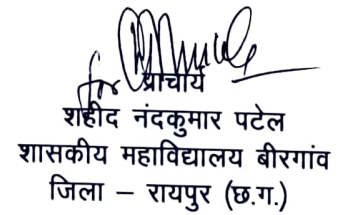 for प्राचार्य
शहीद नंदकुमार पटेल
शासकीय महाविद्यालय बीरगांव
जिला – रायपुर (छ.ग.)